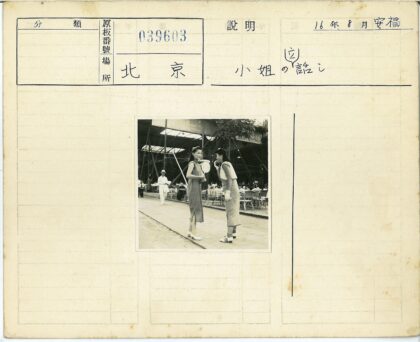 分類
原板番號
039603
場所
北京
説明
16年8月安福
小姐の立話し